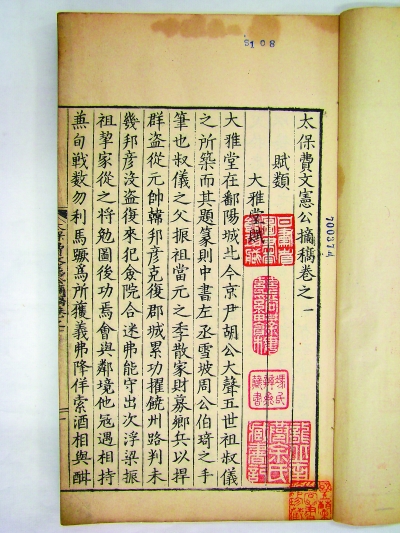 8108
700374
太保費文憲公摘稿卷之一
賦類
大雅堂賦
大雅堂在鄱陽城北今京尹胡公大聲五世祖叔儀
之所築而其題篆則中書左丞雪坡周公伯琦之手
筆也叔儀之父振祖當元之季散家財募鄉兵以捍
群盜從元帥韓邦彥克復郡城累功擢饒州路判未
幾邦彥沒盜復來犯僉院合迷弗能守出次浮梁振
祖挈家從之将勉圖後功焉會與鄰境他冦遇相持
兼旬戦数勿利馬蹶為所獲義弗降佯索酒相與酣